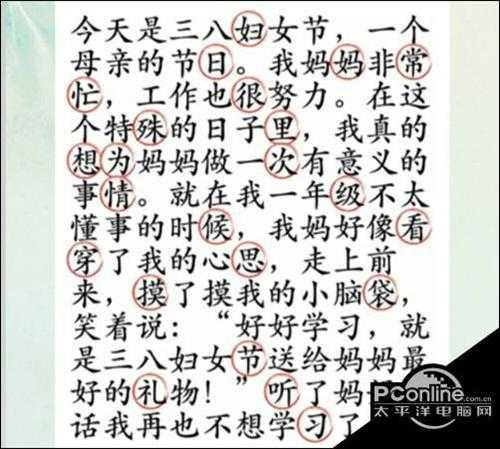 今天是三八妇女节，一个
母亲的节日。我妈妈非常
忙，工作也很努力。在这
个特殊的日子里，我真的
想为妈妈做一次有意义的
事情。就在我一年级不太
懂事的时候，我妈好像看
穿了我的心思，走上前
来，摸了摸我的小脑袋，
笑着说：“好好学习，就
是三八妇女节送给妈妈最
好的礼物！”听了妈
话我再也不想学习了
PConline
.com.cn
太平洋电脑网